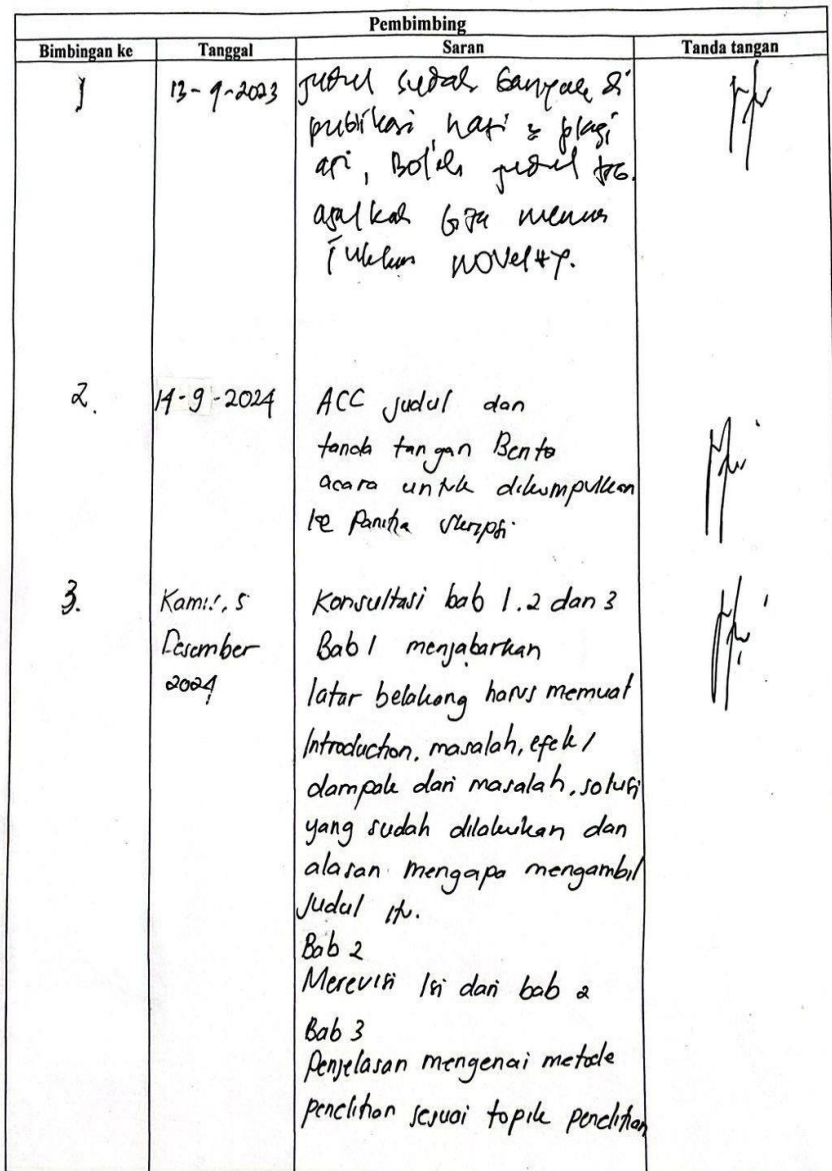 Pembimbing
Bimbingan ke Tanggal Saran Tanda tangan
1 13-9-2023 judul sudah banyak di
publikasi, hati2 plagi
asi, Boleh judul tsb.
asalkan bisa menun
jukkan novelty.
2. 14-9-2024 ACC judul dan
tanda tangan Berita
acara untuk dikumpulkan
ke Panitia skripsi
3. Kamis, 5 Konsultasi bab 1.2 dan 3
Desember Bab 1 menjabarkan
2024 latar belakang harus memuat
Introduction, masalah, efek/
dampak dari masalah, solusi
yang sudah dilakukan dan
alasan mengapa mengambil
Judul itu.
Bab 2
Merevisi Isi dari bab 2
Bab 3
Penjelasan mengenai metode
penelitian sesuai topik penelitian